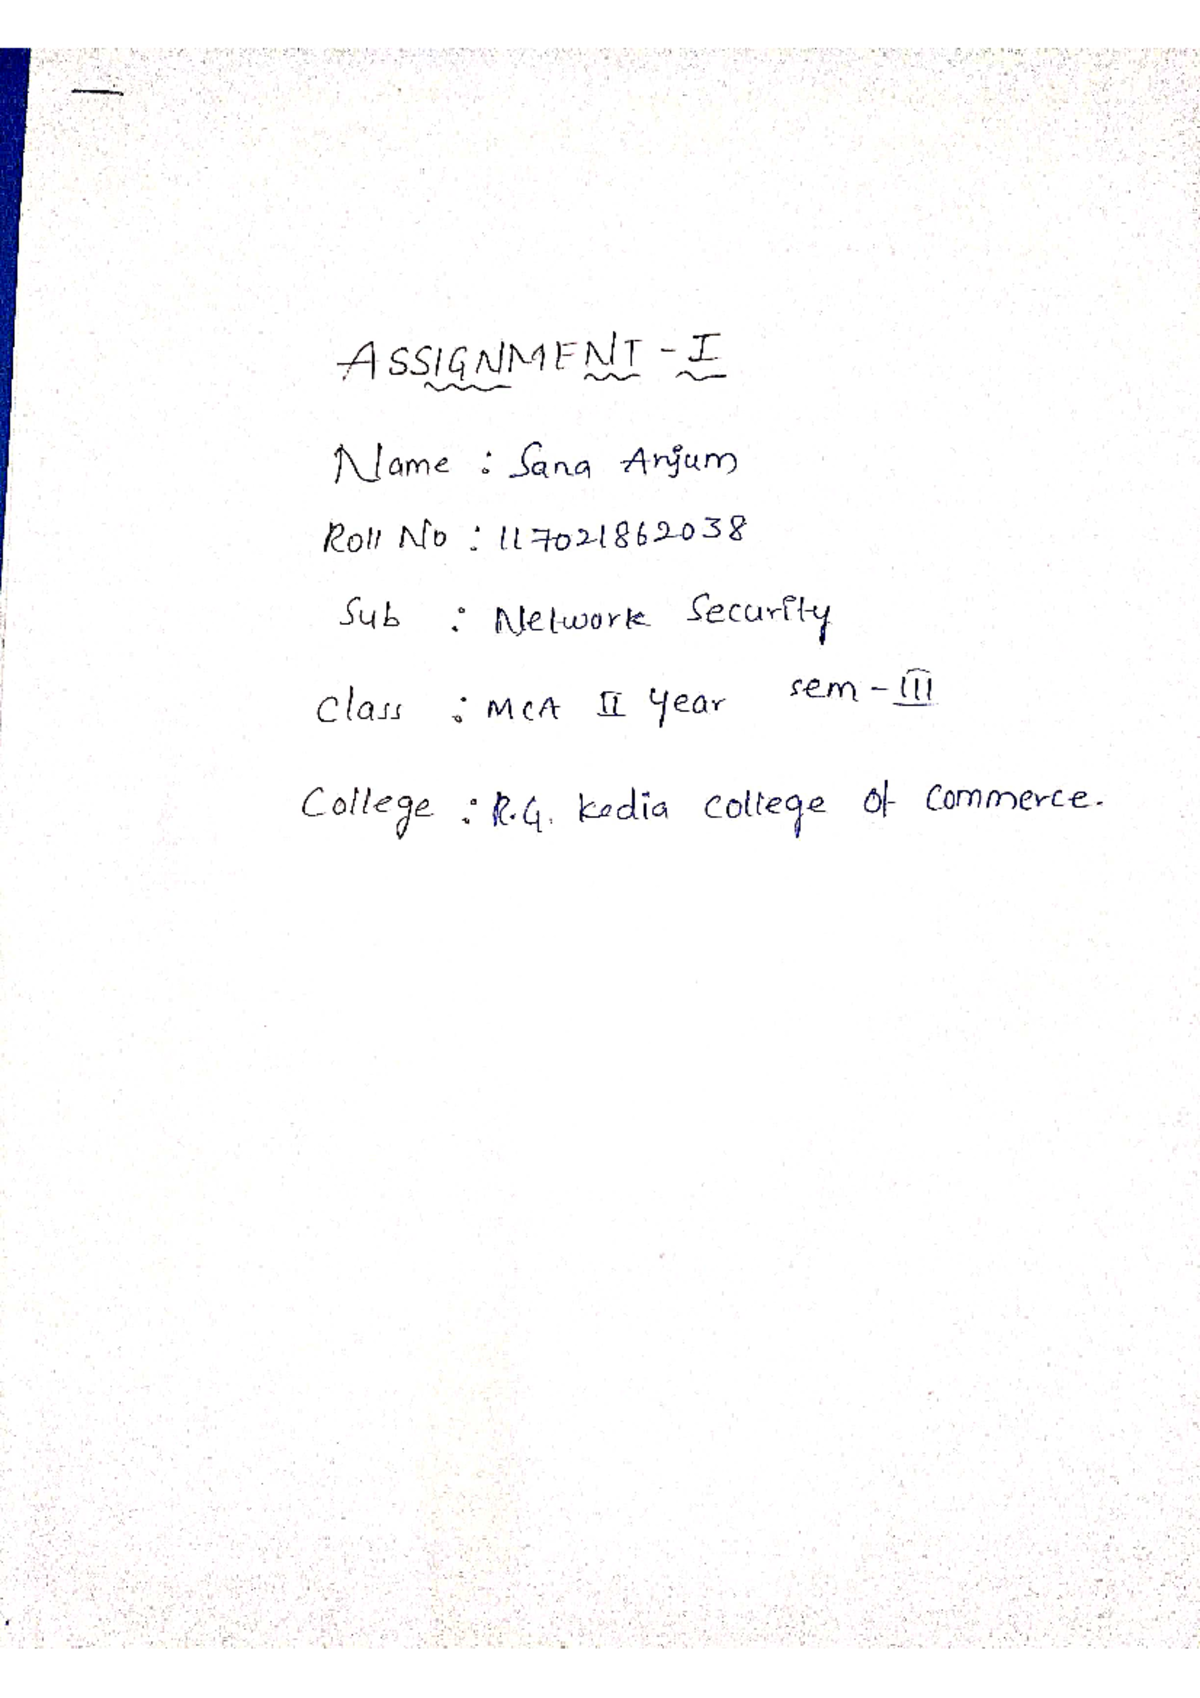 ASSIGNMENT - I
Name : Sana Anjum
Roll No : 117021862038
Sub : Network Security
Class : MCA II Year sem - III
College : R.G. Kedia college of commerce.